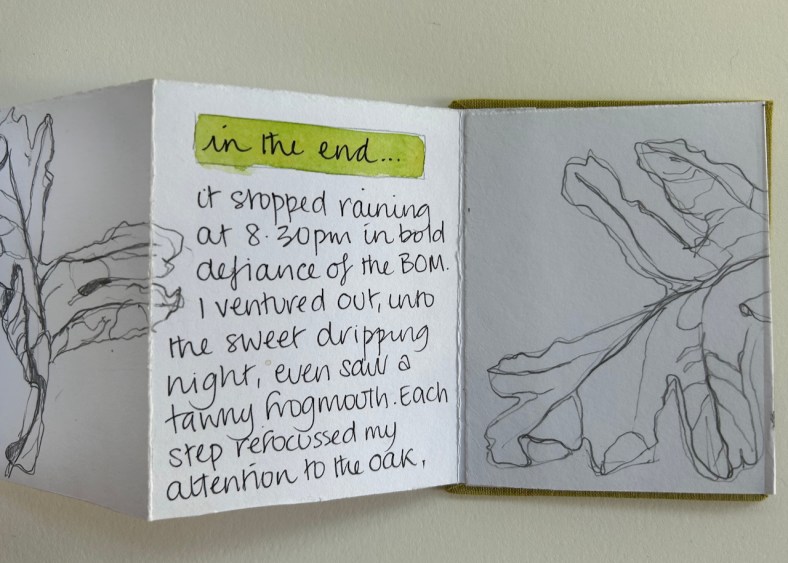 in the end...
it stopped raining
at 8.30pm in bold
defiance of the BOM.
I ventured out, into
the sweet dripping
night, even saw a
tawny frogmouth. Each
step refocussed my
attention to the oak,